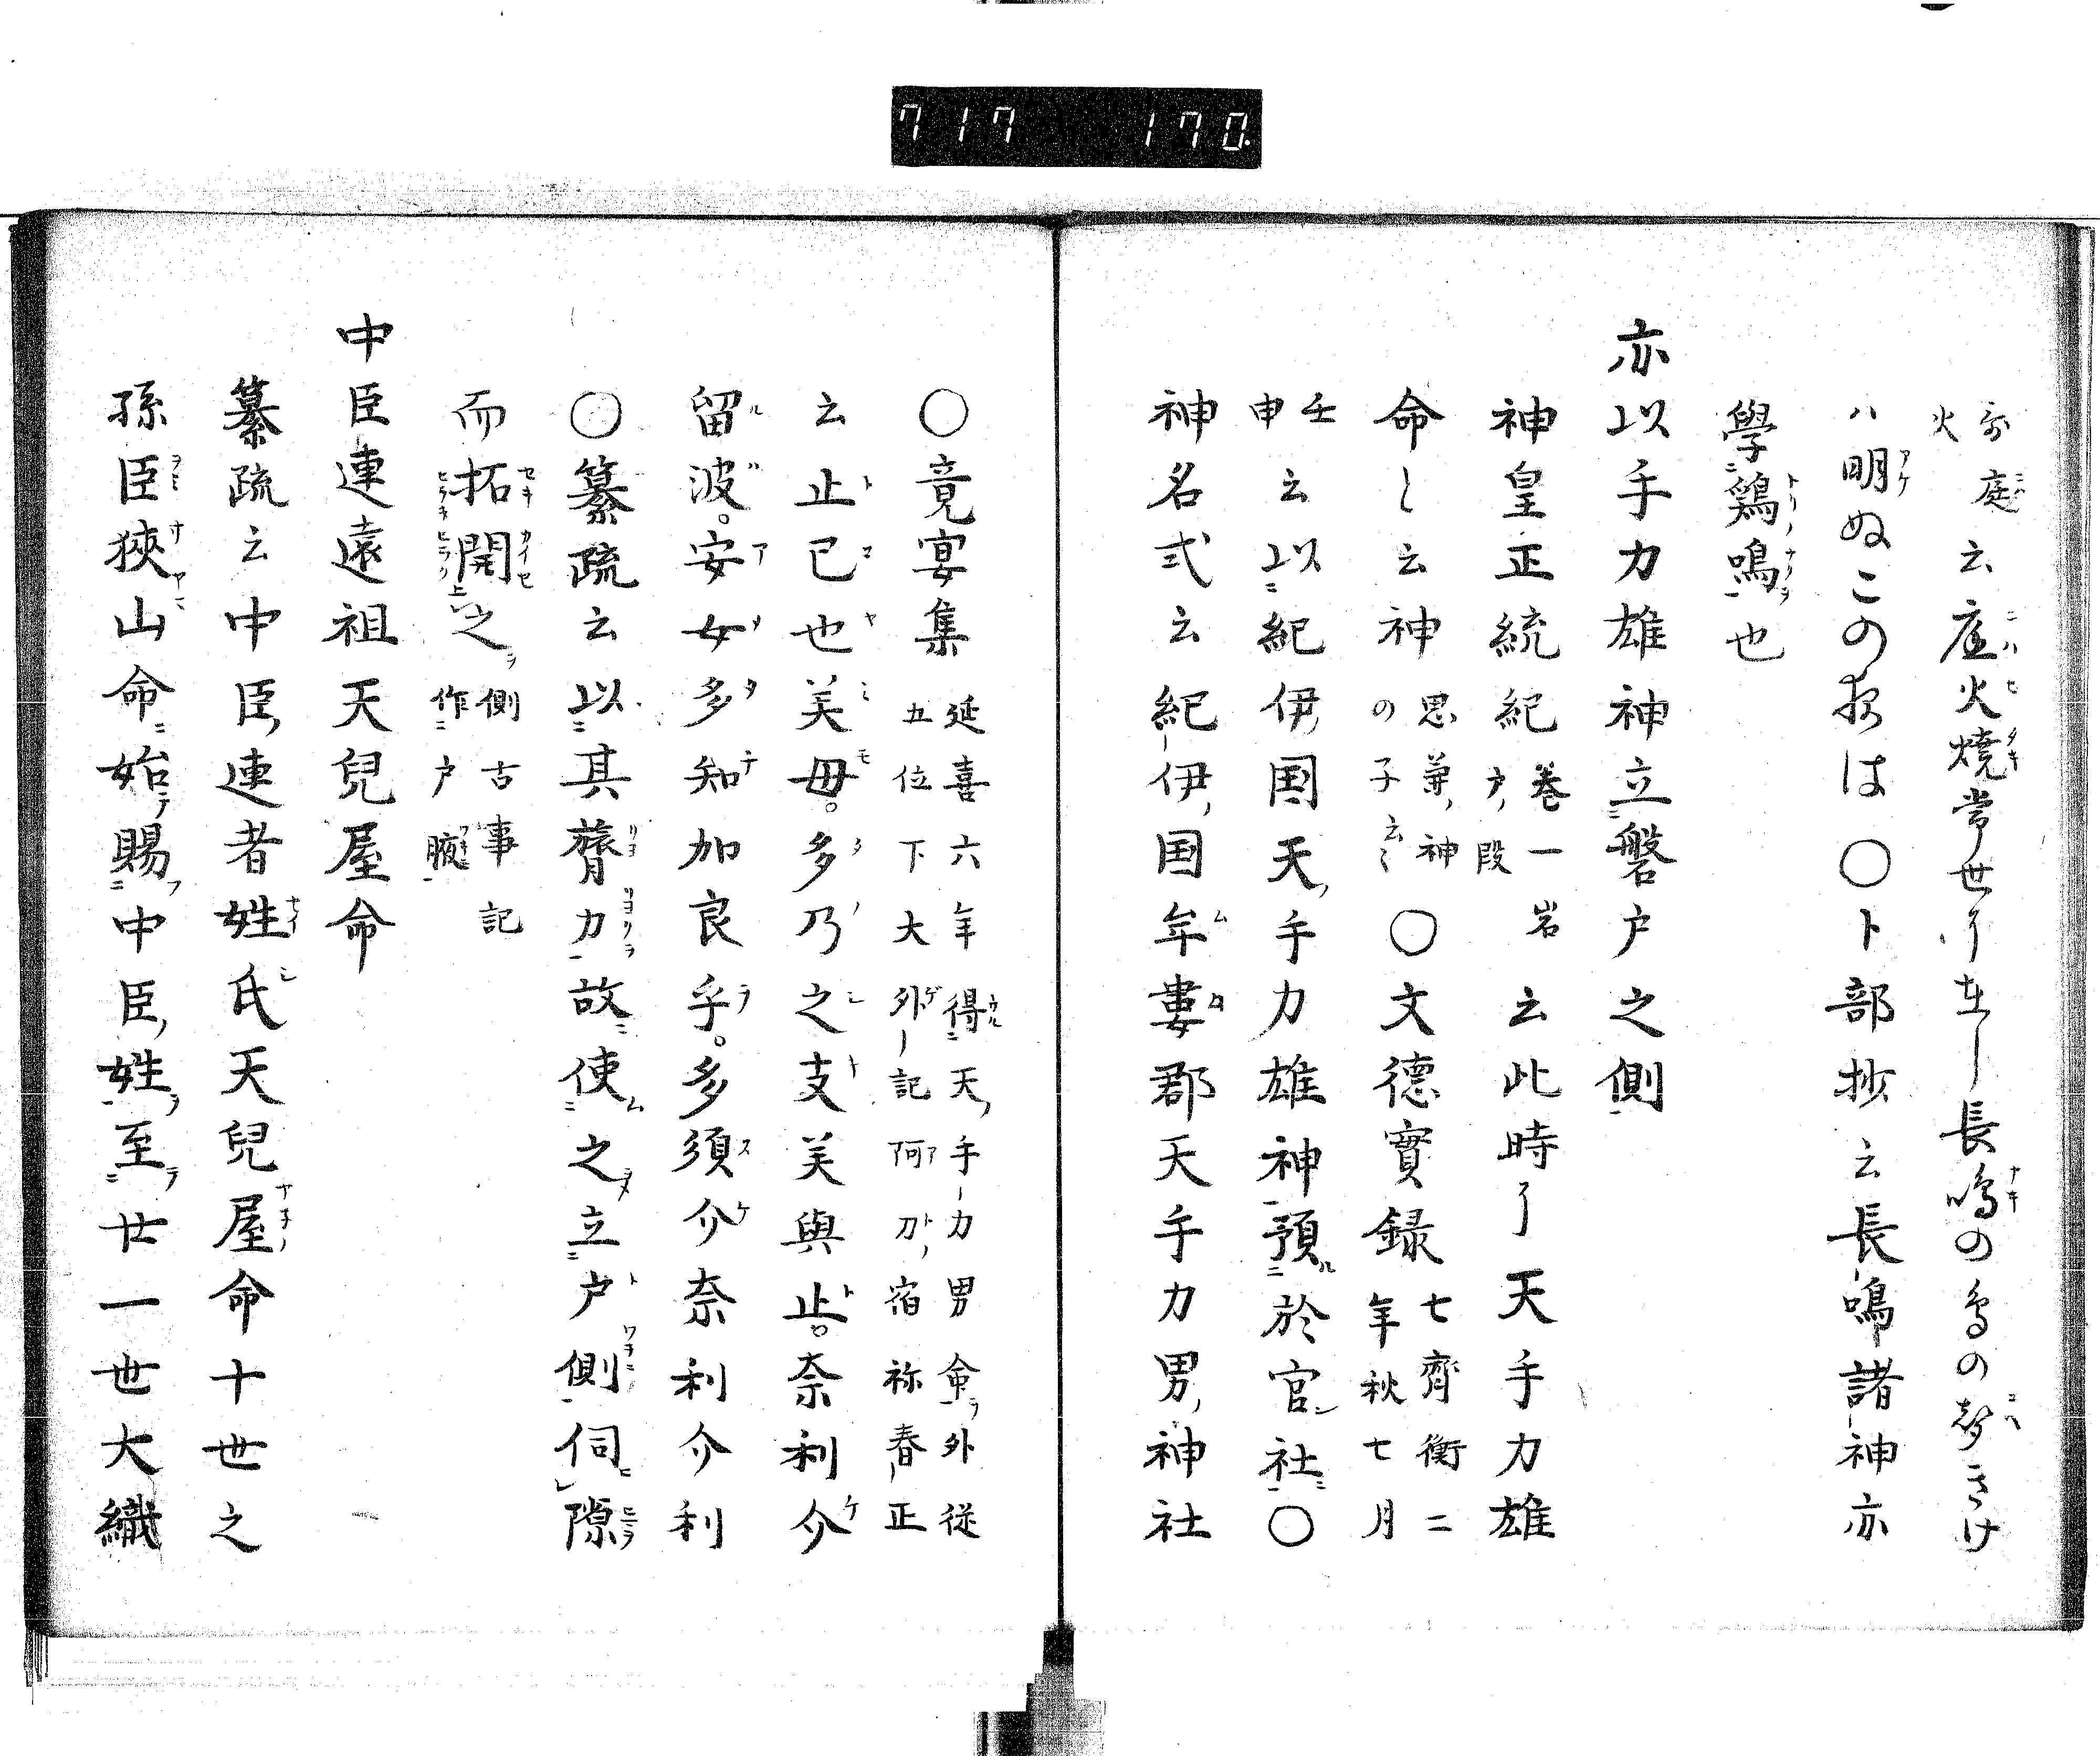 717 170.
哥庭火云庭火焼常世り在し長鳴の鳥の声きけ
ハ明ぬこの夜は〇卜部抄云長鳴諸神亦
學鶏鳴也
亦以手力雄神立磐戸之側
神皇正統紀巻一岩戸段云此時り天手力雄
命し云神思兼神の子云〻〇文德實録七齊衡二年秋七月
壬申云以紀伊国天手力雄神預於官社〇
神名式云紀伊国牟婁郡天手力男神社
〇竟宴集延喜六年得天手力男命外従五位下大外記阿刀宿祢春正
云止己也美毋。多乃之支美與止。奈利介
留波。安女多知加良乎。多須介奈利介利
〇纂疏云以其膂力故使之立戸側伺隙
而拓開之側古事記作戸腋
中臣連遠祖天兒屋命
纂疏云中臣連者姓氏天兒屋命十世之
孫臣狹山命始賜中臣姓至廿一世大織